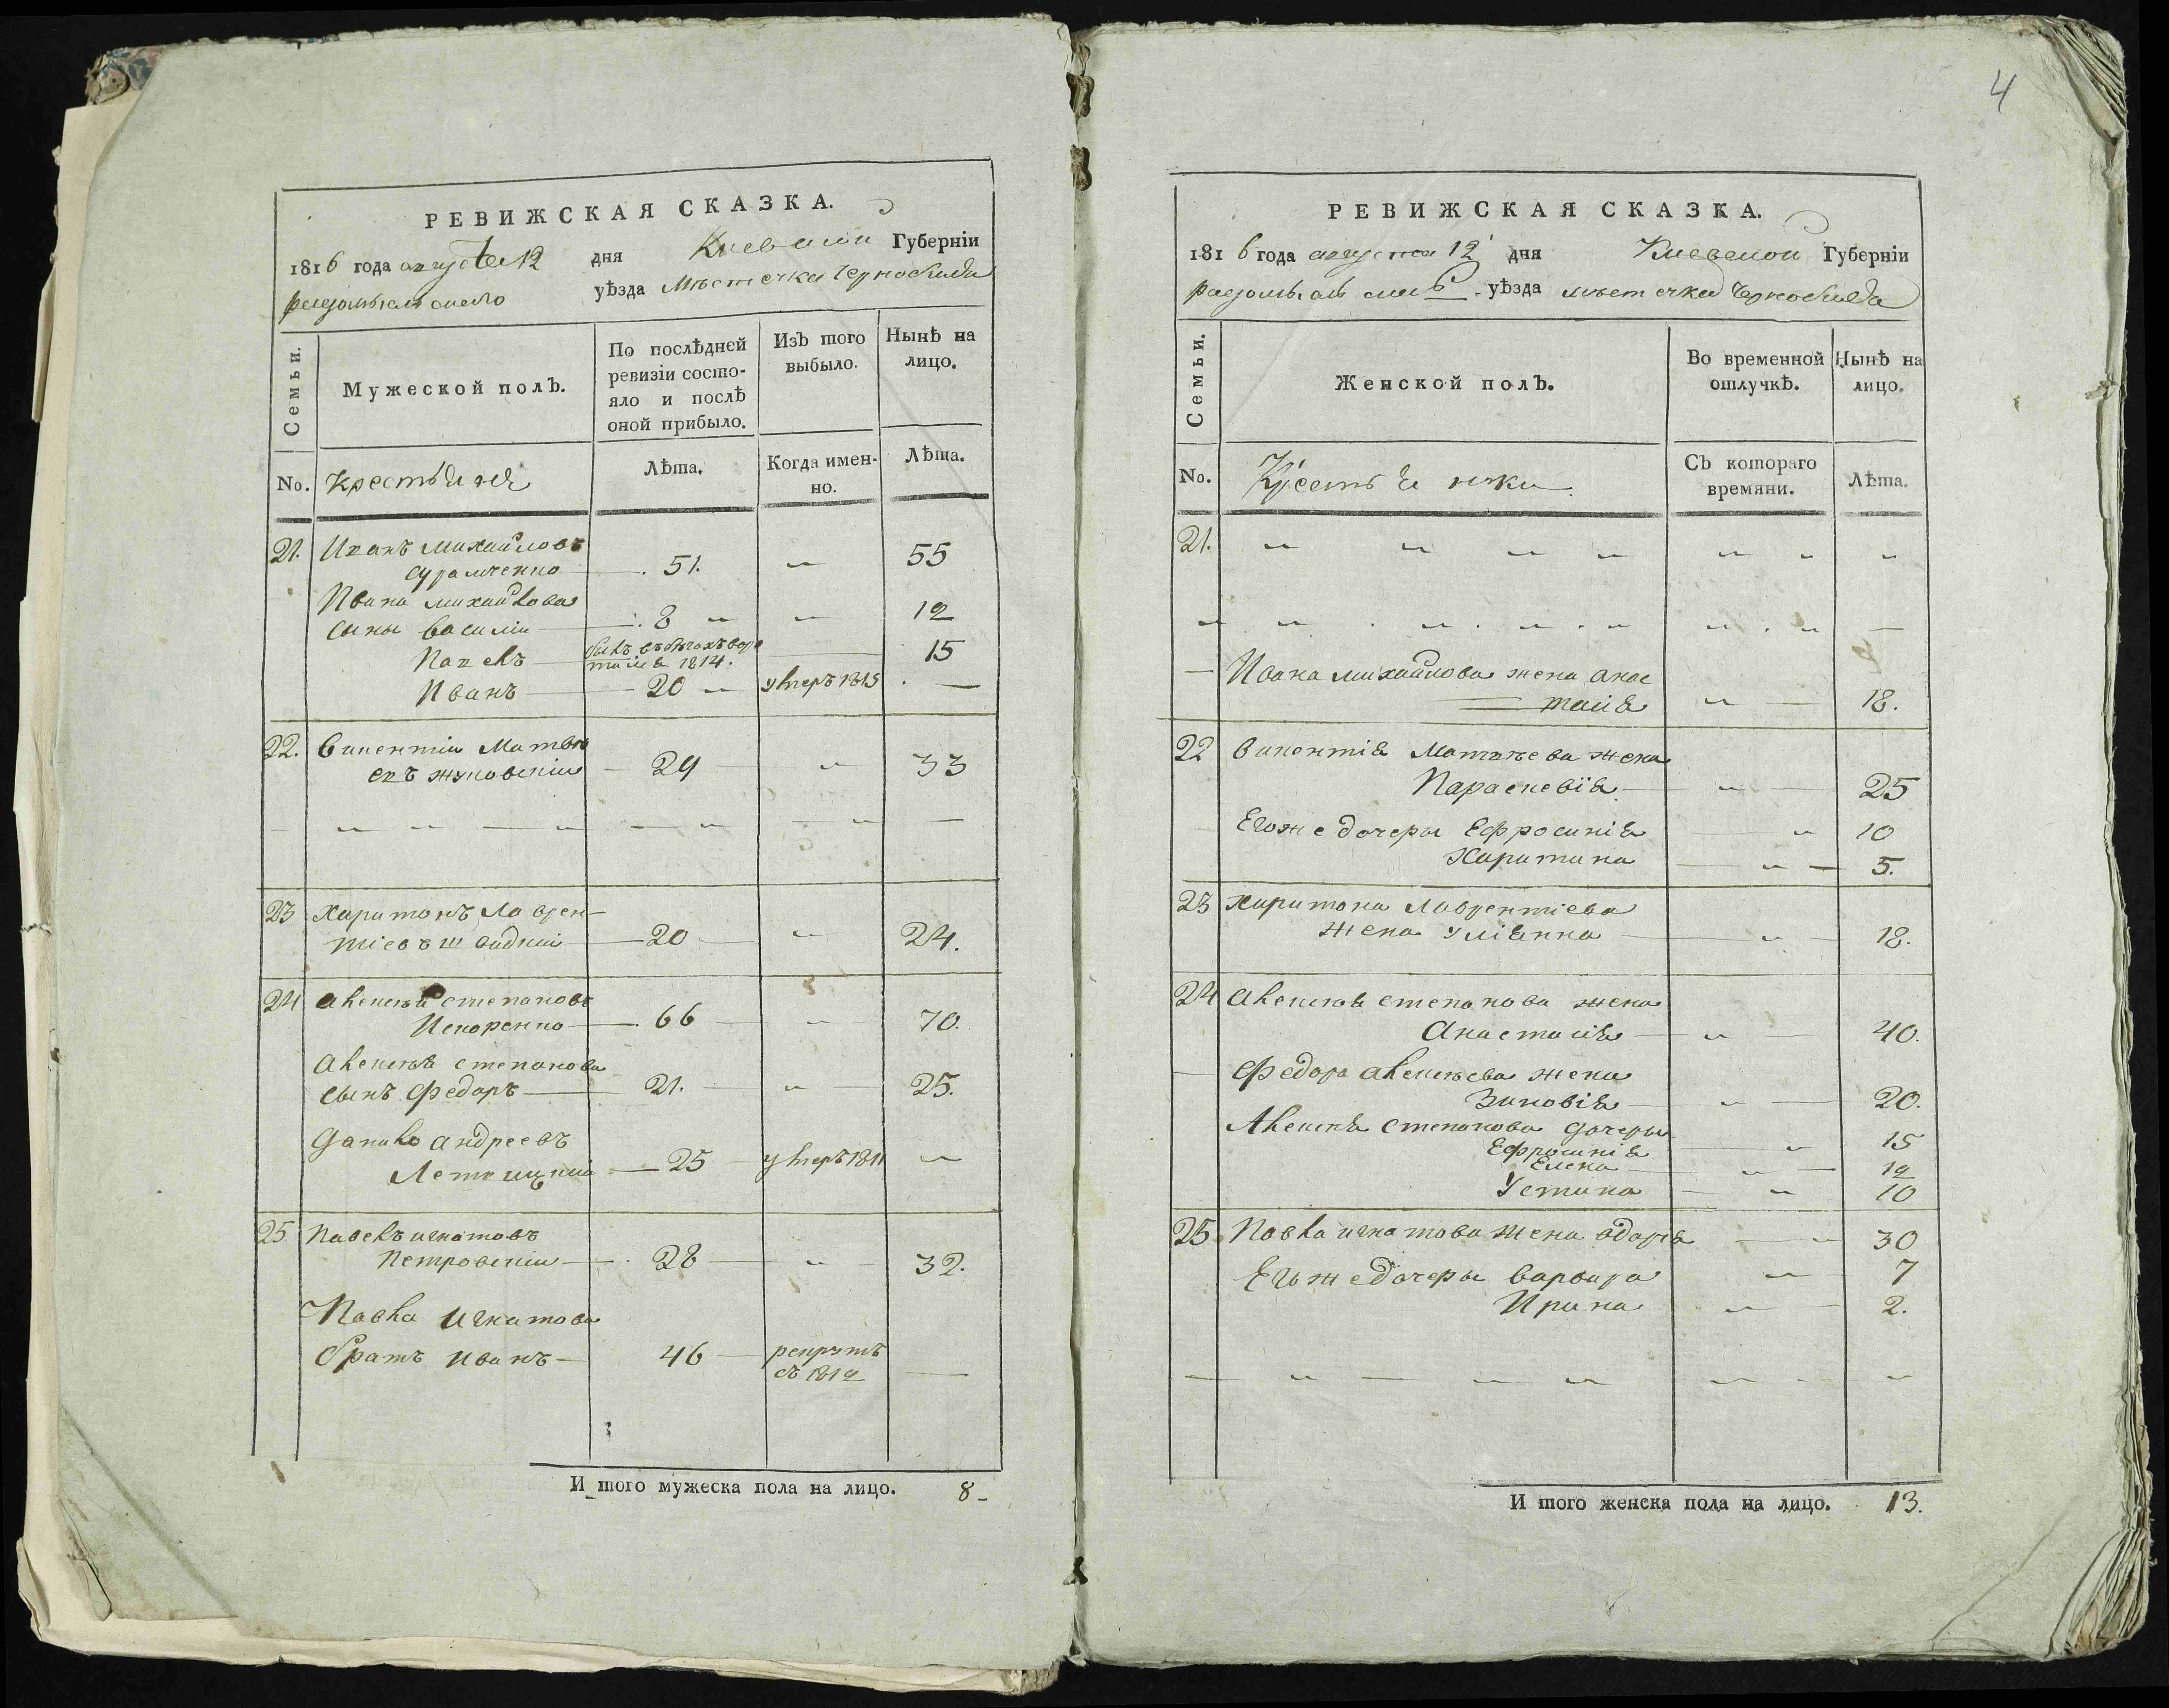 4
РЕВИЖСКАЯ СКАЗКА.
1816 года августа 12 дня Киевской Губерніи
уѣзда Мѣстечка Чернобиля
Семьи.
Мужеской полъ.
По послѣдней ревизіи состояло и послѣ оной прибыло.
Изъ того выбыло.
Нынѣ на лицо.
No. Крестьяня
Лѣта.
Когда именно.
Лѣта.
21. Иванъ Михайловъ
51. 〃 55
Ивана Михайлова
сыны Василіи 8 〃 〃 12
Павелъ
1814. 15
Иванъ 20 〃 умеръ 1815 —
22. Викентіи Матвѣ
евъ Жуковскіи 29 〃 33
23 Харитонъ Лаврен-
тіевъ Швидкіи 20 〃 24.
24 Алексѣй Степановъ
Искоренко 66 〃 70.
Алексѣя Степанова
сынъ Федоръ 21. 〃 25.
Данило Андреевъ
25 умеръ 1811 〃
25 Павелъ Игнатовъ
Петровскіи 28 〃 32.
Павла Игнатова
братъ Иванъ 46 рекрутъ
съ 1812 —
И того мужеска пола на лицо. 8-
РЕВИЖСКАЯ СКАЗКА.
1816 года августа 12 дня Киевской Губерніи
уѣзда мѣстечка Чернобиля
Семьи.
Женской полъ.
Во временной отлучкѣ.
Нынѣ на лицо.
No. Крестьянки
Съ котораго времяни.
Лѣта.
21. 〃 〃 〃 〃 〃 〃 〃
— Ивана Михайлова жена Анас
тасія 〃 18.
22 Викентія Матвѣева жена
Параскевія 〃 25
Егоже дочеры Ефросинія 〃 10
Харитина 〃 5.
23 Харитона Лаврентіева
жена Уліянна 〃 18.
24 Алексѣя Степанова жена
Анастасія 〃 40.
— Федора Алексѣева жена
Зиновія 〃 20.
Алексѣя Степанова дочеры
Ефросинія 〃 15
Елена 〃 12
Устина 〃 10
25 Павла Игнатова жена Одарія 〃 30
Егоже дочеры Варвара 〃 7
Ирина 〃 2.
И того женска пола на лицо. 13.